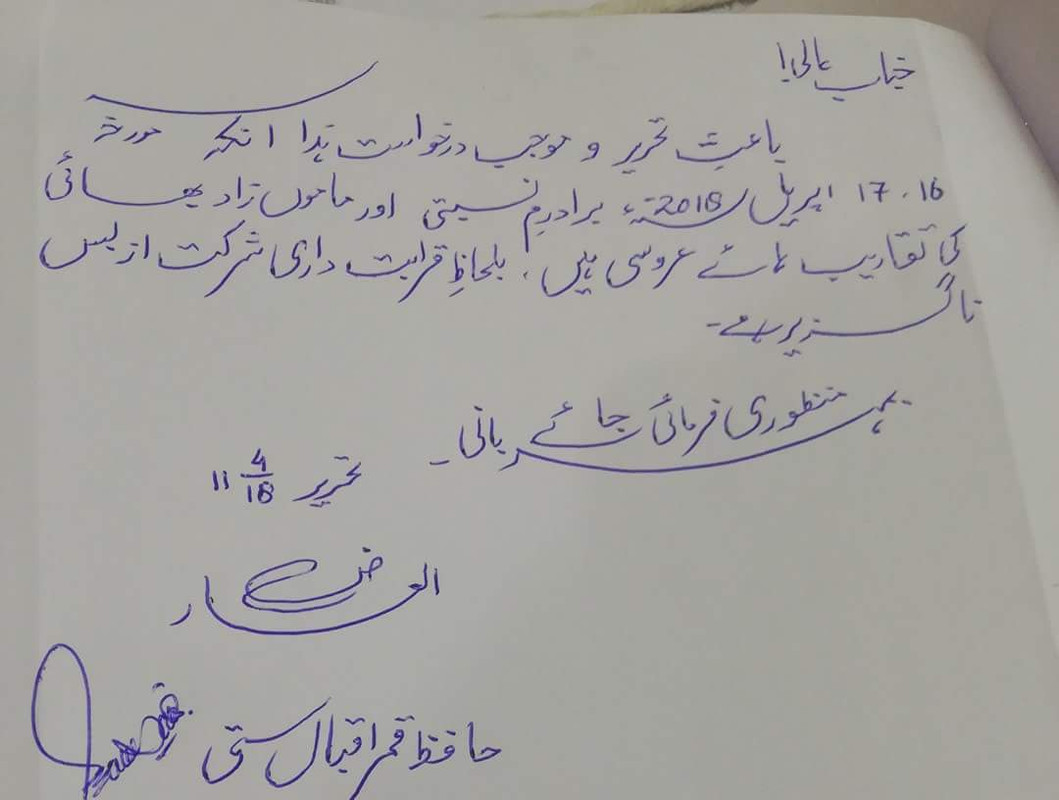 جناب عالی!
باعثِ تحریر و موجب درخواست ہذا آنکہ مورخہ
16، 17 اپریل 2018ء برادرم نسبتی اور ماموں زاد بھائی
کی تقاریب ہائے عروسی ہیں، بلحاظِ قرابت داری شرکت از بس
ناگزیر ہے۔
منظوری فرمائی جائے مہربانی۔
تحریر 11 4/18
العارض
حافظ قمر اقبال ستی